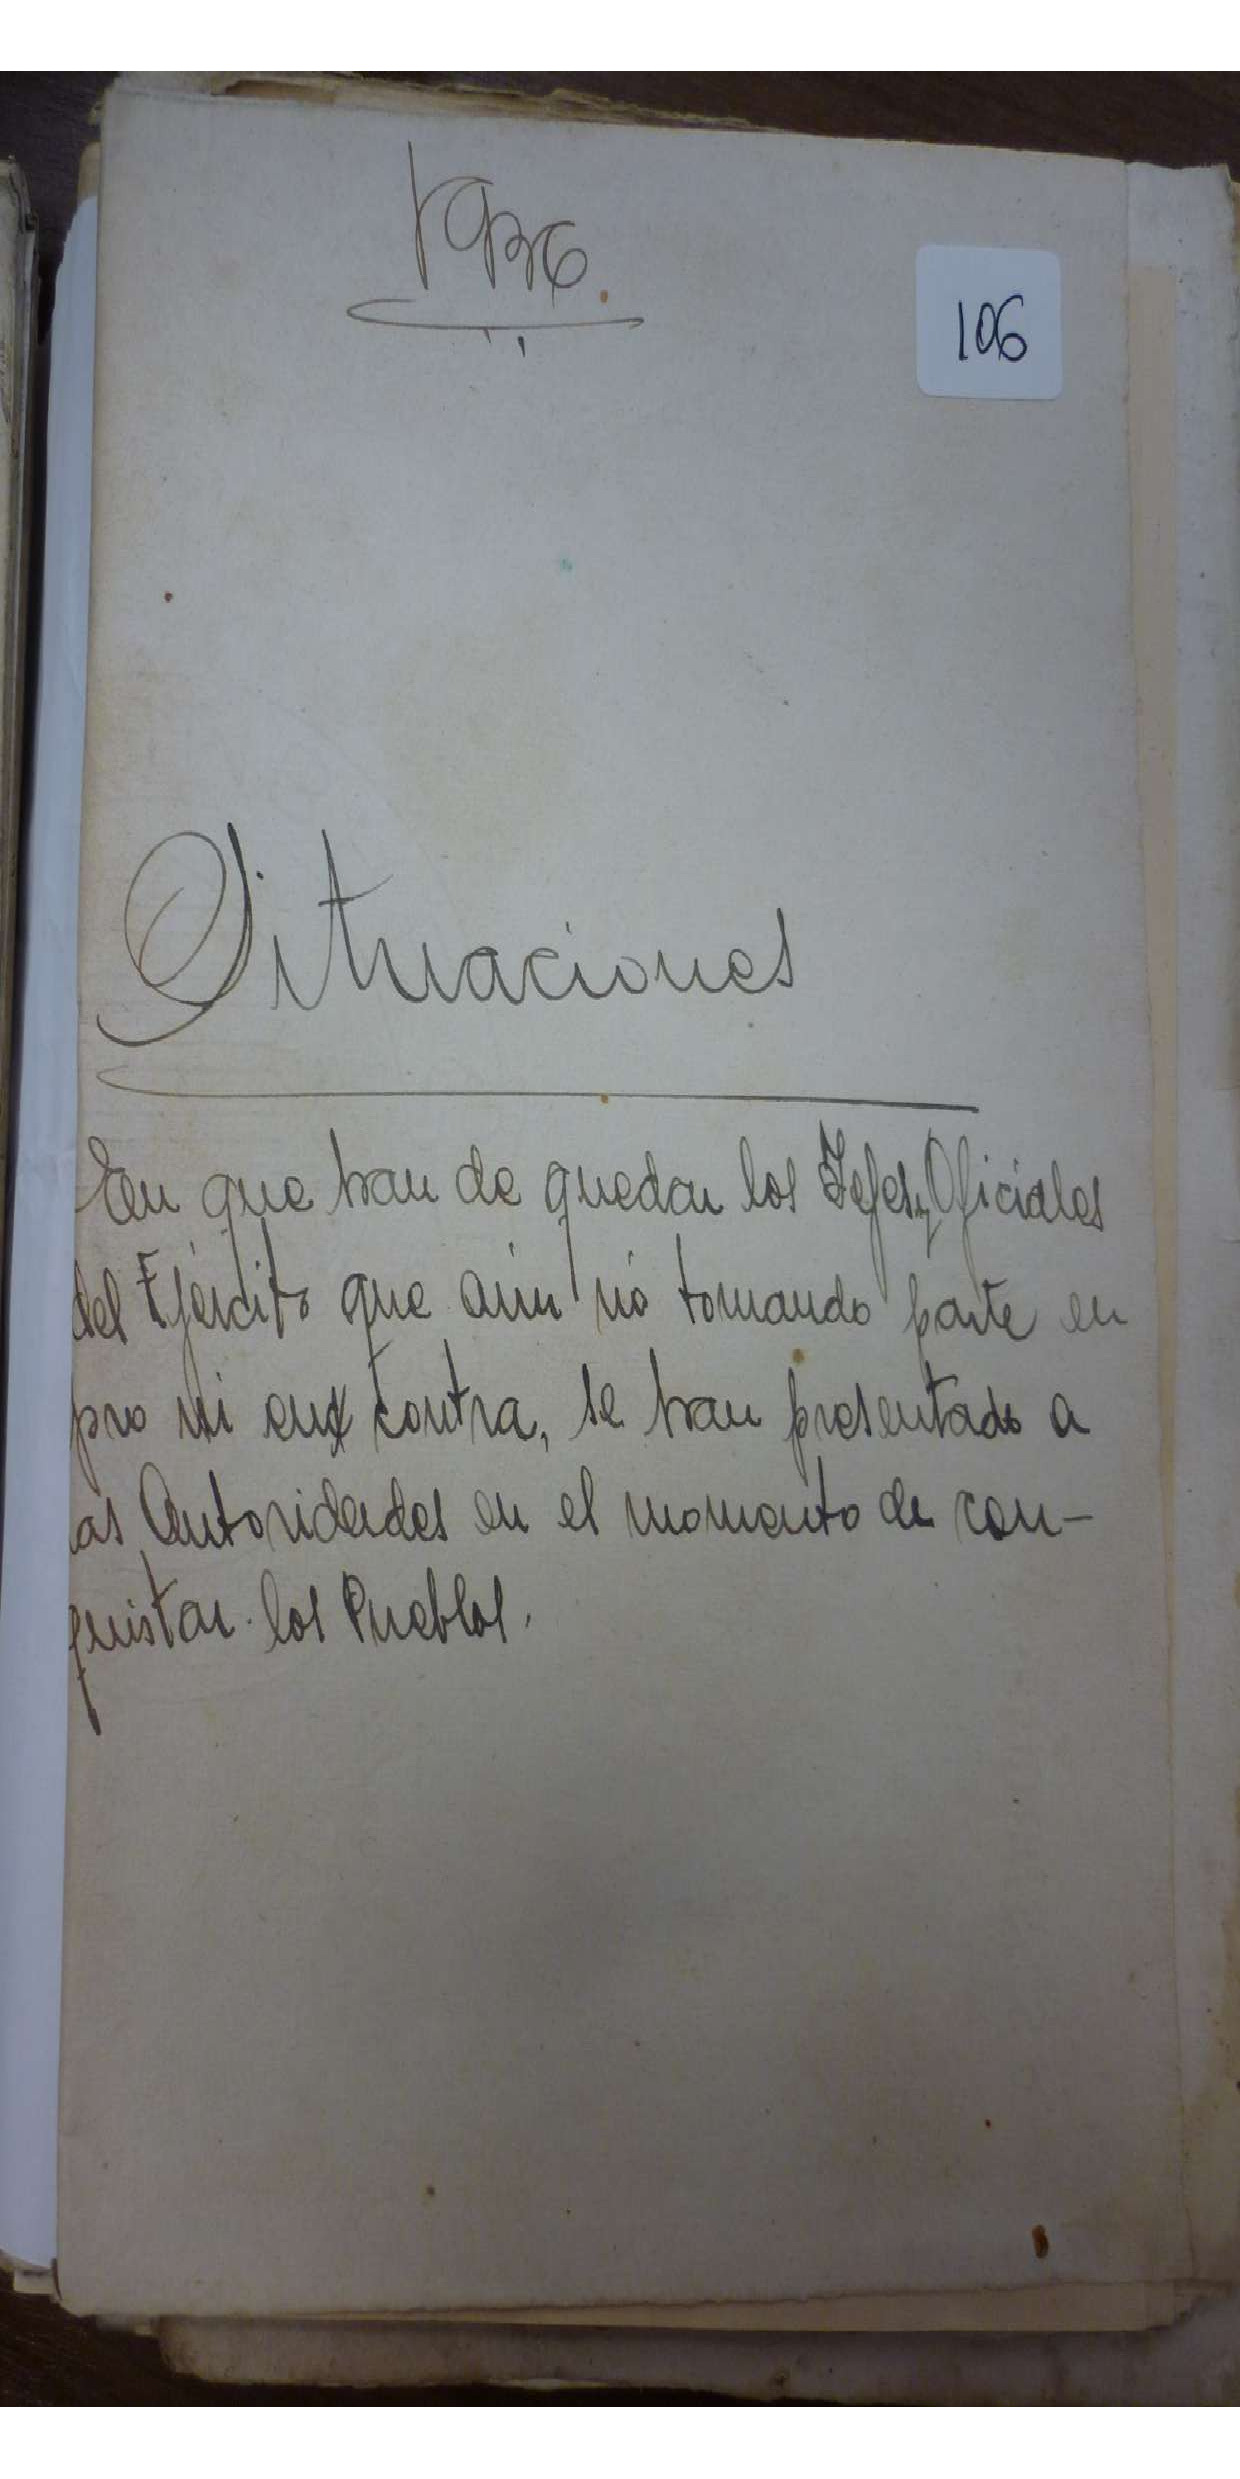 1936.
106
Situaciones
En que han de quedar los Jefes y Oficiales
del Ejército que aún no tomando parte en
pro ni en contra, se han presentado a
las Autoridades en el momento de con-
quistar los Pueblos.